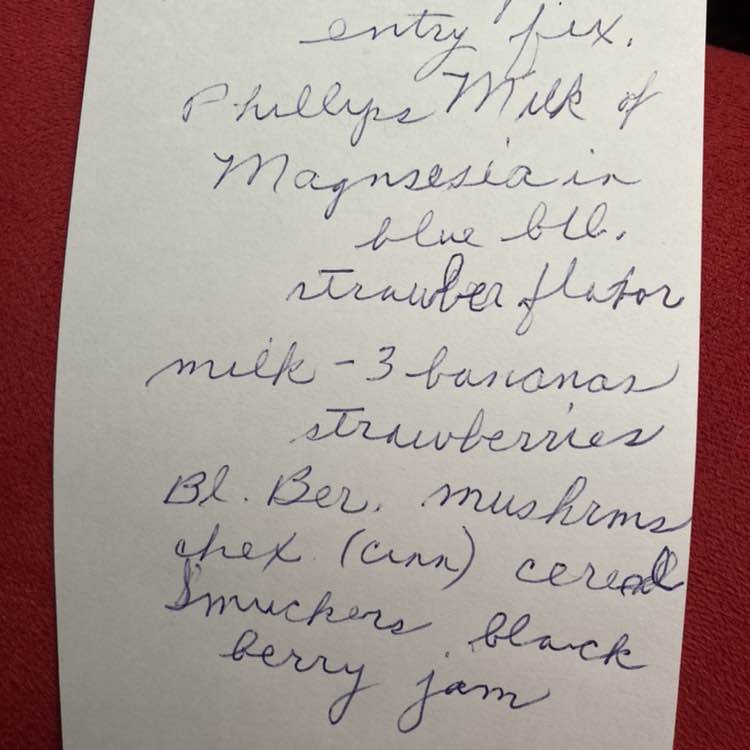 entry fix.
Phillips Milk of
Magnsesia in
blue btl.
strawber flavor
milk - 3 bananas
strawberries
Bl. Ber. mushrms
chex (cinn) cereal
Smuckers black
berry jam